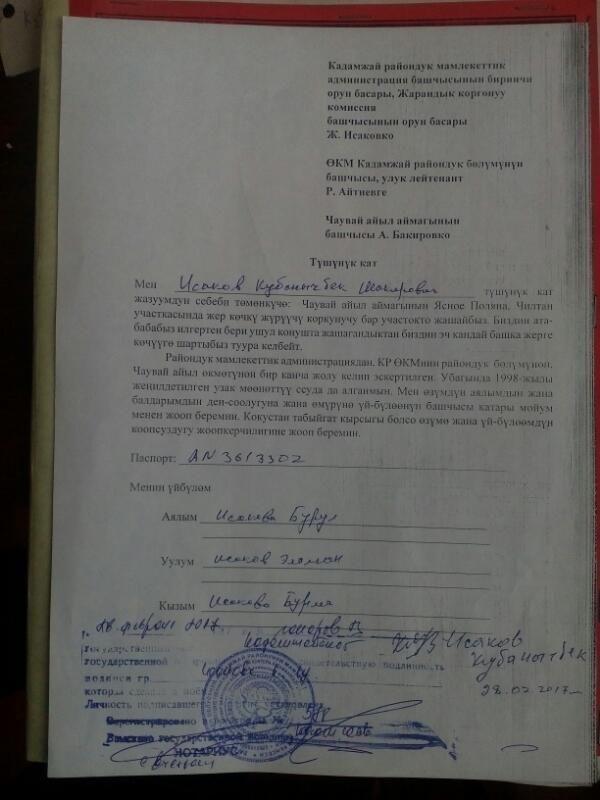 Кадамжай райондук мамлекеттик
администрация башчысынын биринчи
орун басары, Жарандык коргонуу
комиссия
башчысынын орун басары
Ж. Исаковко
ӨКМ Кадамжай райондук бөлүмүнүн
башчысы, улук лейтенант
Р. Айтиевге
Чаувай айыл аймагынын
башчысы А. Бакировко
Түшүнүк кат
Мен Исаков Кубанычбек Шакирович түшүнүк кат
жазуумдун себеби төмөнкүчө: Чаувай айыл аймагынын Ясное Поляна, Чилтан
участкасында жер көчкү жүрүүчү коркунучу бар участокто жашайбыз. Биздин ата-
бабабыз илгертен бери ушул конушта жашагандыктан биздин эч кандай башка жерге
көчүүгө шартыбыз туура келбейт.
Райондук мамлекеттик администрациядан, КР ӨКМнин райондук бөлүмүнөн,
Чаувай айыл өкмөтүнөн бир канча жолу келип эскертилген. Убагында 1998-жылы
жеңилдетилген узак мөөнөттүү ссуда да алганмын. Мен өзүмдүн аялымдын жана
балдарымдын ден-соолугуна жана өмүрүнө үй-бүлөөнүн башчысы катары мойум
менен жооп беремин. Кокустан табыйгат кырсыгы болсо өзүмө жана үй-бүлөөмдүн
коопсуздугу жоопкерчилигине жооп беремин.
Паспорт: AN 3613302
Менин үйбүлөм
Аялым Исакова Бурул
Уулум Исаков
Кызым Исакова
28 февраль 2017
Исаков
Кубанычбек
государственной подлинность
подписи гр.
28.02.2017
которы сделана в моём
Личность подписавшего
Зарегистрировано №
Взыскано государственной пошлины
НОТАРИУС